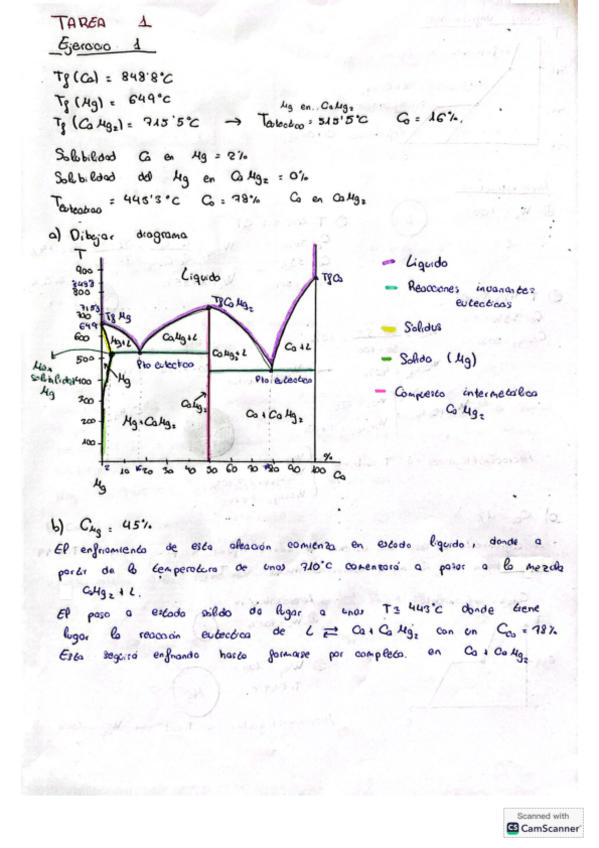 TAREA 1
Ejercicio 1
Tf (Ca) = 848'8ºC
Tf (Mg) = 649ºC
Mg en CaMg2
Tf (CaMg2) = 715'5ºC → Teutectico = 515'5ºC Co = 16%.
Solubilidad Ca en Mg = 2%
Solubilidad del Mg en CaMg2 = 0%
Teutectico = 445'3ºC Co = 78% Ca en CaMg2
a) Dibujar diagrama
T
900
800
715'5
700
649
600
500
400
300
200
100
Líquido
Tf Mg
Tf CaMg2
Tf Ca
Mg+L
CaMg2+L
CaMg2+L
Ca+L
Pto eutectico
Pto eutectico
Max solubilidad Mg
Mg
CaMg2
Mg+CaMg2
Ca+CaMg2
2 10 16 20 30 40 50 60 70 78 90 100
%
Ca
Mg
Liquido
Reacciones invariantes eutecticas
Solidus
Solido (Mg)
Compuesto intermetálico
CaMg2
b) CMg = 45%
El enfriamiento de esta aleación comienza en estado liquido, donde a
partir de la temperatura de unos 710ºC comenzará a pasar a la mezcla
CaMg2 + L.
El paso a estado sólido da lugar a unos T≅ 443ºC donde tiene
lugar la reacción eutectica de L ⇌ Ca + CaMg2 con un CCa = 78%
Esta seguirá enfriando hasta formarse por completo en Ca + CaMg2
Scanned with
CS CamScanner